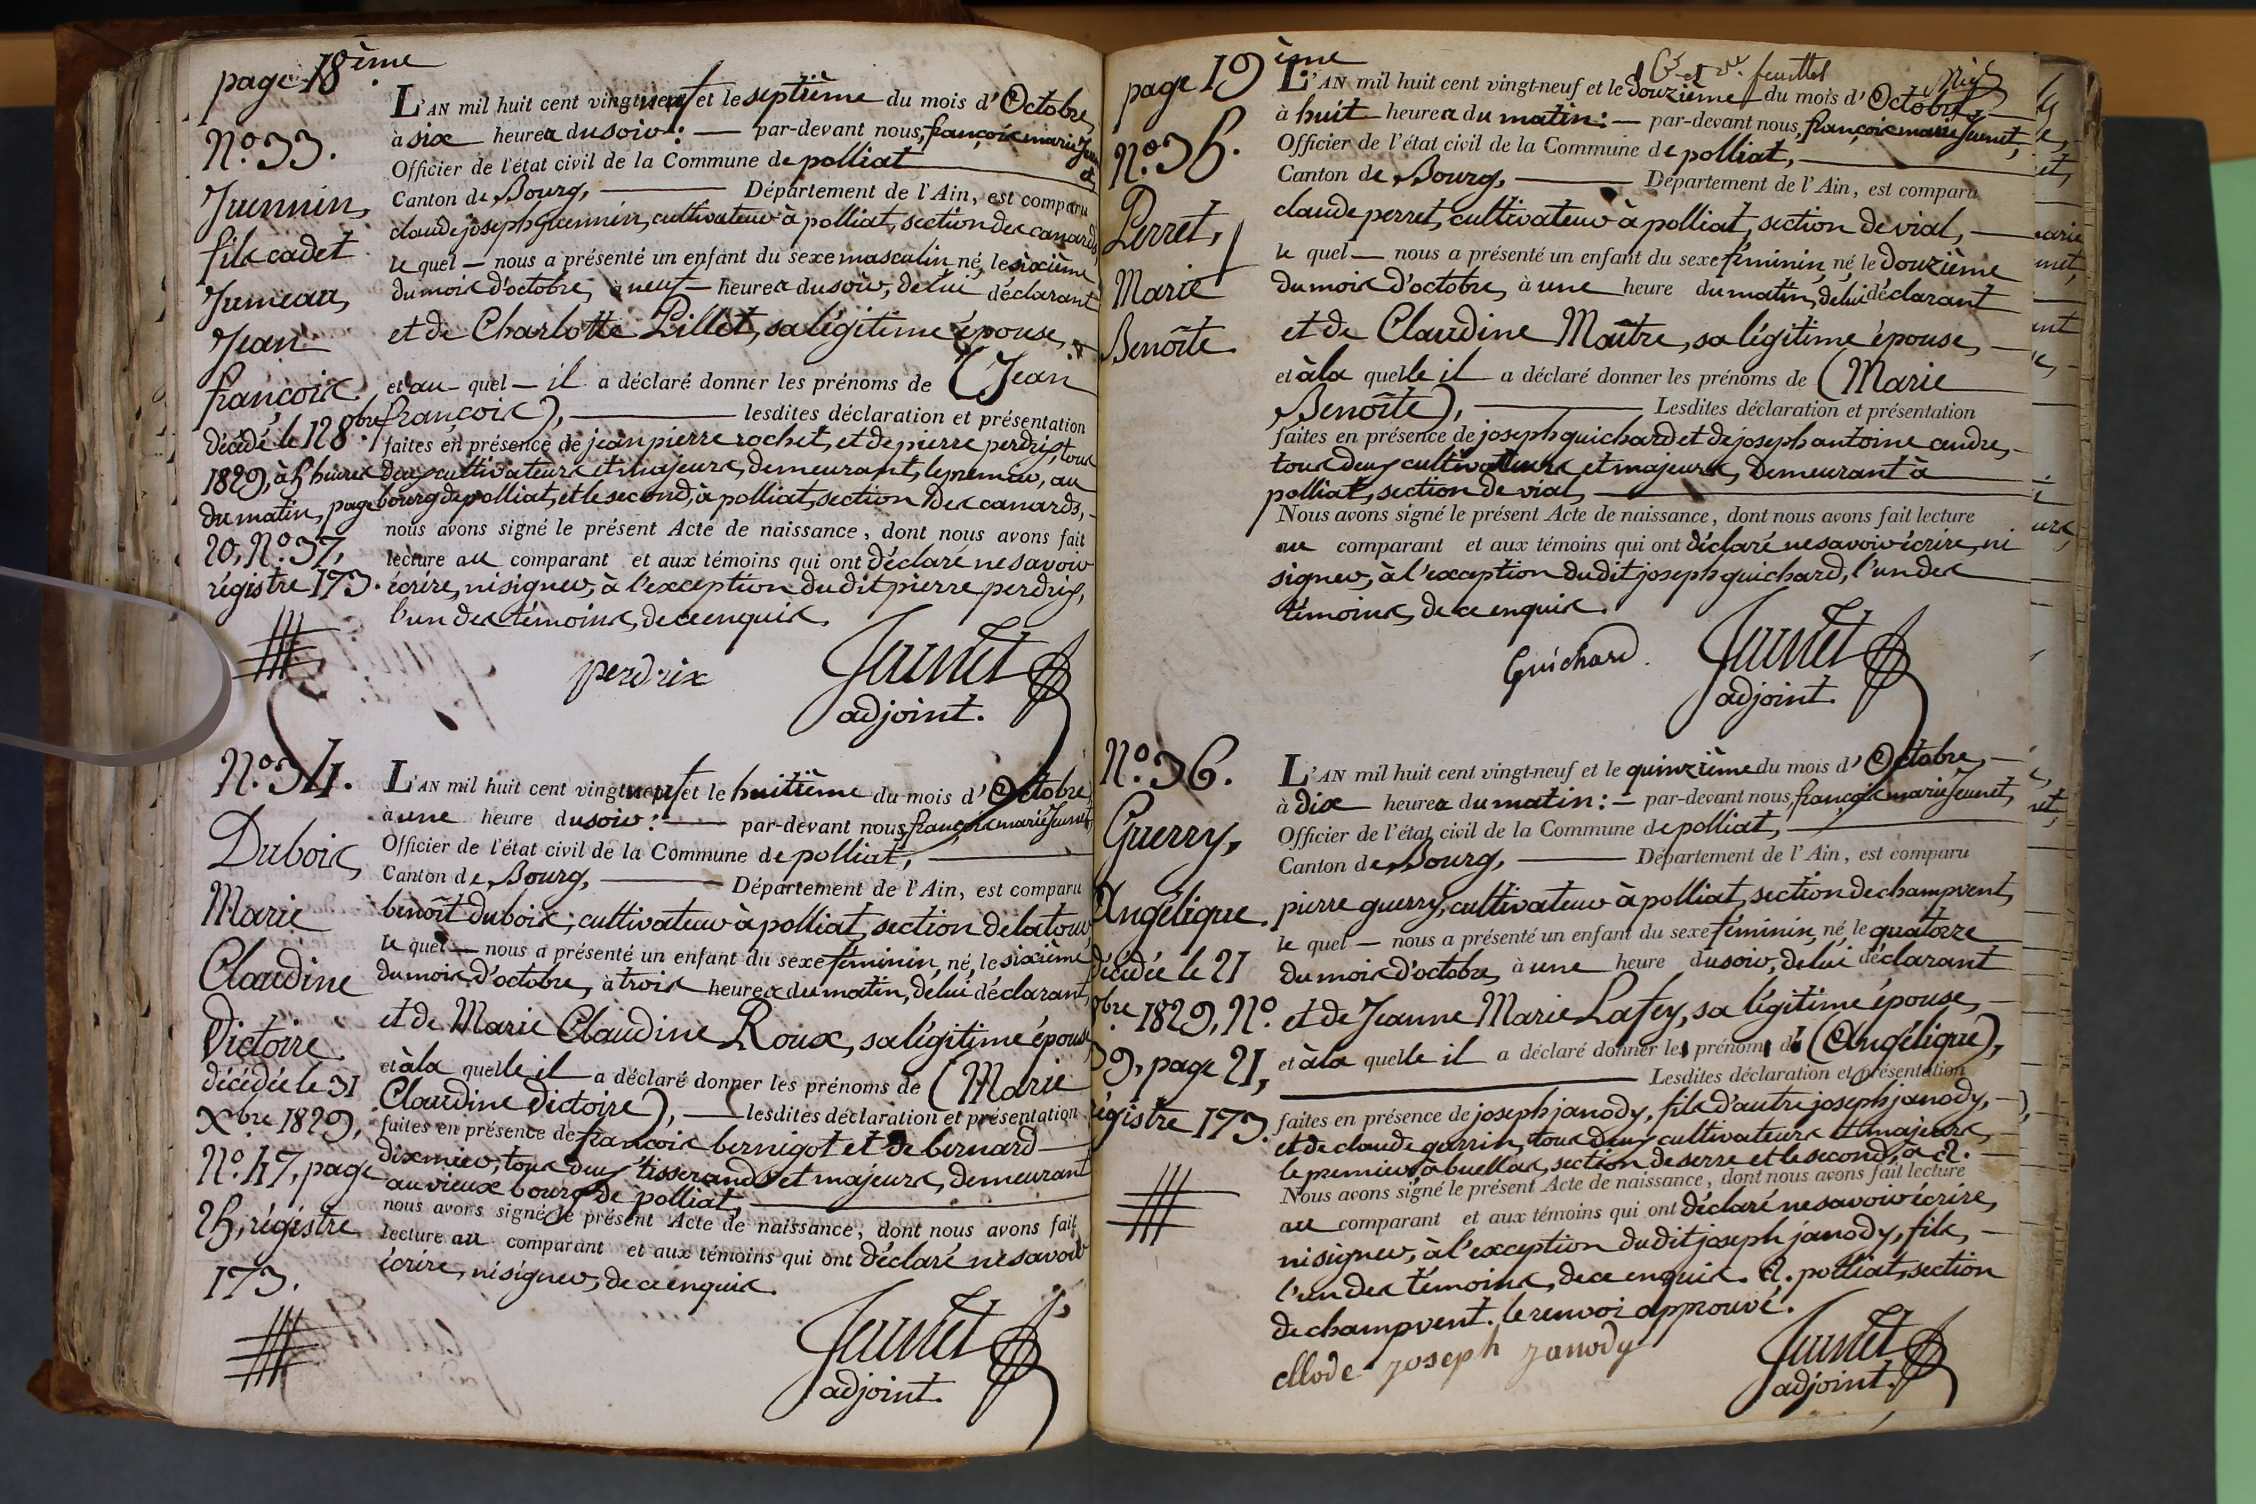 page 18 ème
N.º 33.
Juennin,
fils cadet
Jumeau,
Jean
françois.
décédé le 12 8.bre
1829, à 5 heures
du matin, page
20, N.º 37,
régistre 173.
L'AN mil huit cent vingt neuf et le septième du mois d'Octobre,
à six heures du soir: — par-devant nous, françois marie Jeunet,
Officier de l'état civil de la Commune de polliat
Canton de Bourg, — Département de l'Ain, est comparu
claude joseph Juennin, cultivateur à polliat, section des canards,
le quel — nous a présenté un enfant du sexe masculin, né, le sixième
du mois d'octobre, à neuf — heures du soir, de lui déclarant
et de Charlotte Pillet, sa légitime épouse,
et au quel — il a déclaré donner les prénoms de (Jean
françois), — lesdites déclaration et présentation
faites en présence de jean pierre rochet, et de pierre perdrix, tous
deux cultivateurs et majeurs, demeurant, le premier, au
bourg de polliat, et le second, à polliat, section des canards,
nous avons signé le présent Acte de naissance, dont nous avons fait
lecture au comparant et aux témoins qui ont déclaré ne savoir
écrire, ni signer, à l'exception du dit pierre perdrix,
l'un des témoins, de ce enquis.
perdrix Jeunet
adjoint.
N.º 34.
Dubois,
Marie
Claudine
Victoire.
décédée le 31
Xbre 1829,
N.º 47, page
25, régistre
173.
L'AN mil huit cent vingt neuf et le huitième du mois d'Octobre,
à une heure du soir: — par-devant nous, françois marie Jeunet,
Officier de l'état civil de la Commune de polliat,
Canton de Bourg, — Département de l'Ain, est comparu
benoît dubois, cultivateur à polliat, section de latour,
le quel — nous a présenté un enfant du sexe féminin, né, le sixième
du mois d'octobre, à trois heures du matin, de lui déclarant,
et de Marie Claudine Roux, sa légitime épouse
et à la quelle il a déclaré donner les prénoms de (Marie
Claudine Victoire), — lesdites déclaration et présentation
faites en présence de françois bernigot et de bernard
dixmier, tous deux tisserands et majeurs, demeurant
au vieux bourg de polliat,
nous avons signé le présent Acte de naissance, dont nous avons fait
lecture au comparant et aux témoins qui ont déclaré ne savoir
écrire, ni signer, de ce enquis.
Jeunet
adjoint.
page 19 ème
feuillet
N.º 35.
Perret,
Marie
Benoîte.
L'AN mil huit cent vingt-neuf et le douzième du mois d'Octobre,
à huit heures du matin: — par-devant nous, françois marie Jeunet,
Officier de l'état civil de la Commune de polliat,
Canton de Bourg, — Département de l'Ain, est comparu
claude perret, cultivateur à polliat, section de vial,
le quel — nous a présenté un enfant du sexe féminin, né, le douzième
du mois d'octobre, à une heure du matin, de lui déclarant
et de Claudine Maître, sa légitime épouse,
et à la quelle il a déclaré donner les prénoms de (Marie
Benoîte), — Lesdites déclaration et présentation
faites en présence de joseph guichard et de joseph antoine andre,
tous deux cultivateurs et majeurs, demeurant à
polliat, section de vial,
Nous avons signé le présent Acte de naissance, dont nous avons fait lecture
au comparant et aux témoins qui ont déclaré ne savoir écrire, ni
signer, à l'exception du dit joseph guichard, l'un des
témoins, de ce enquis.
Guichard. Jeunet
adjoint.
N.º 36.
Guerry,
Angélique.
décédée le 21
bre 1829, N.º
39, page 21,
régistre 173.
L'AN mil huit cent vingt-neuf et le quinzième du mois d'Octobre,
à dix heures du matin: — par-devant nous, françois marie Jeunet,
Officier de l'état civil de la Commune de polliat,
Canton de Bourg, — Département de l'Ain, est comparu
pierre guerry, cultivateur à polliat, section de champvent,
le quel — nous a présenté un enfant du sexe féminin, né, le quatorze
du mois d'octobre, à une heure du soir, de lui déclarant
et de Jeanne Marie Lafey, sa légitime épouse,
et à la quelle il a déclaré donner le prénom de (Angélique),
Lesdites déclaration et présentation
faites en présence de joseph janody, fils d'autre joseph janody,
et de claude guerrin, tous deux cultivateurs et majeurs,
le premier, à buellas, section de serre et le second, à
Nous avons signé le présent Acte de naissance, dont nous avons fait lecture
au comparant et aux témoins qui ont déclaré ne savoir écrire,
ni signer, à l'exception du dit joseph janody, fils,
l'un des témoins, de ce enquis. polliat, section
de champvent. le renvoi approuvé.
joseph janody Jeunet
adjoint.